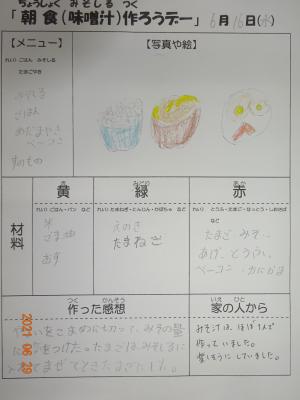 ちょうしょく みそしる つく
「朝食(味噌汁)作ろうデー」6月16日(水)
【メニュー】
れい)ごはん みそしる
たまごやき
みそしる
ごはん
めだまやき
ベーコン
すのもの
【写真や絵】
材料
き
黄
れい)ごはん・パン など
米
ごま油
おす
みどり
緑
れい)たまねぎ・にんじん・かぼちゃ など
えのき
たまねぎ
あか
赤
れい) とうふ・たまご・なっとう・しおさば など
たまご みそ
あげ とうふ
ベーコン かにかま
つく かんそう
作った感想
をこまめに切って、みその量
をつけた。たまごはみそしるに
まぜてときたまごにした。
いえ ひと
家の人から
みそ汁は、ほぼ1人で
作っていました。
楽しそうにしていました。
2021 06 29